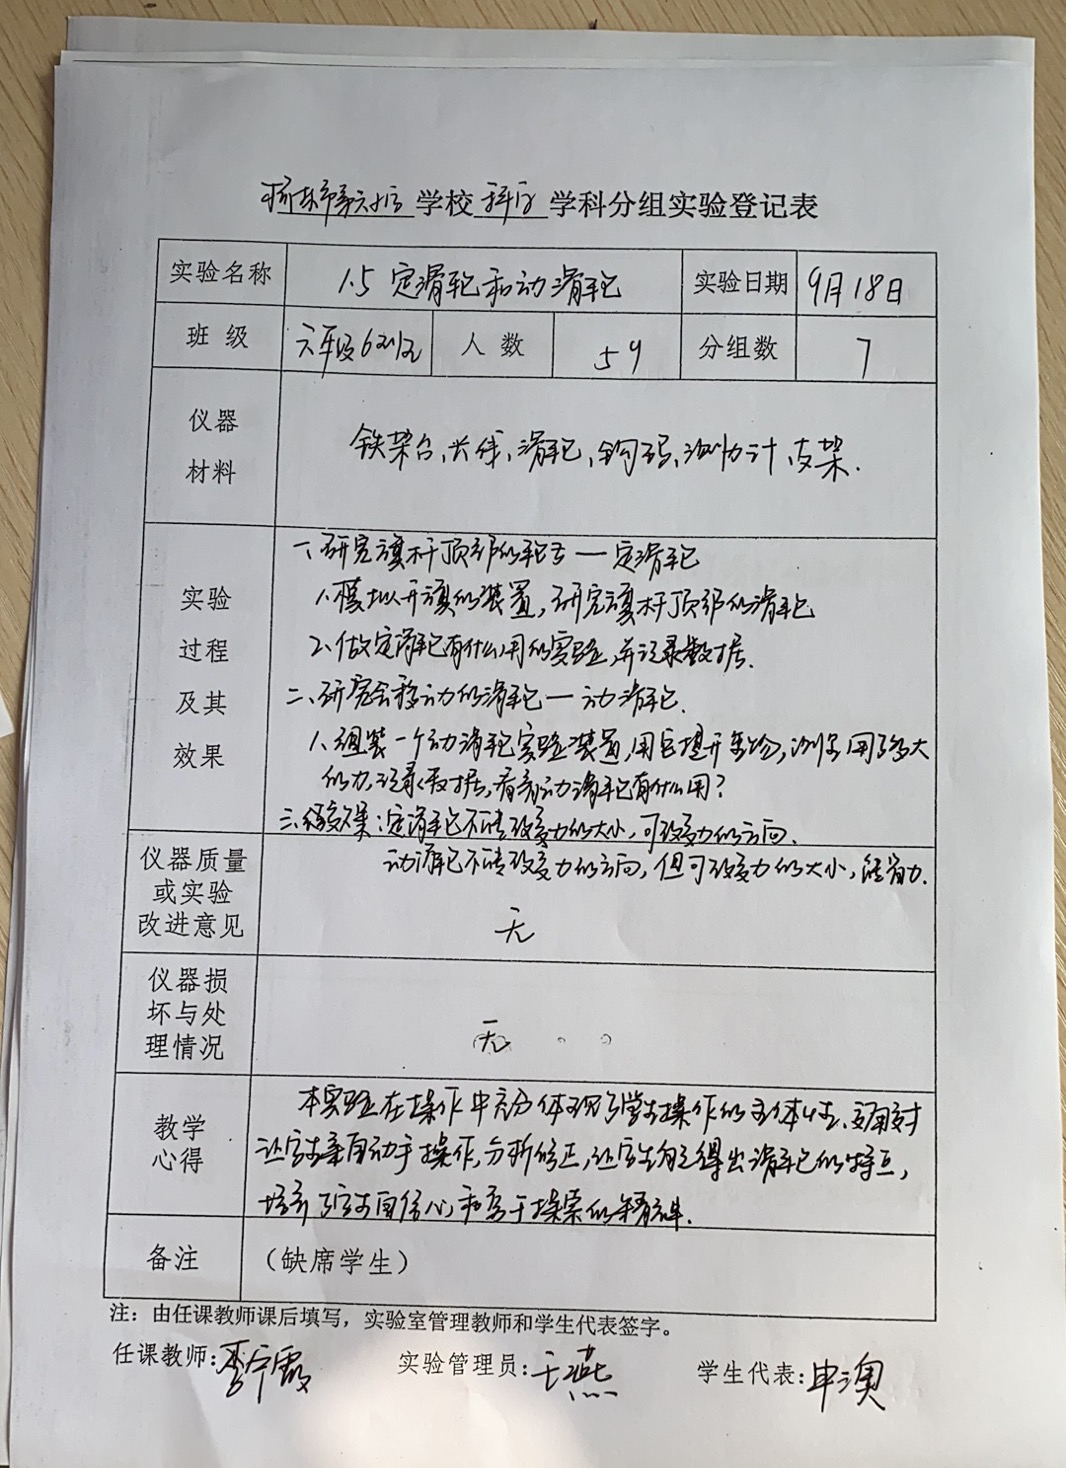 学校 科学 学科分组实验登记表
实验名称 1.5 定滑轮和动滑轮 实验日期 9月18日
班 级 六年级 人 数 59 分组数 7
仪器
材料
铁架台、长线、滑轮、钩码、测力计、支架.
实验
过程
及其
效果
一、研究旗杆顶部的轮子——定滑轮
1、模拟升旗的装置,研究旗杆顶部的滑轮
2、做定滑轮有什么用的实验,并记录数据.
二、研究会移动的滑轮——动滑轮.
1、组装一个动滑轮实验装置,用它提升重物,测量用了多大
的力,记录数据,看看动滑轮有什么用?
三、实验效果:定滑轮不能改变力的大小,可改变力的方向.
动滑轮不能改变力的方向,但可改变力的大小,能省力.
仪器质量
或实验
改进意见
无
仪器损
坏与处
理情况
无
教学
心得
本实验在操作中充分体现了学生操作的主体性、
让学生亲自动手操作,分析修正,让学生自己得出滑轮的特点,
培养了学生自信心和勇于探索的精神.
备注 (缺席学生)
注:由任课教师课后填写,实验室管理教师和学生代表签字。
任课教师: 实验管理员:王燕 学生代表:申澳